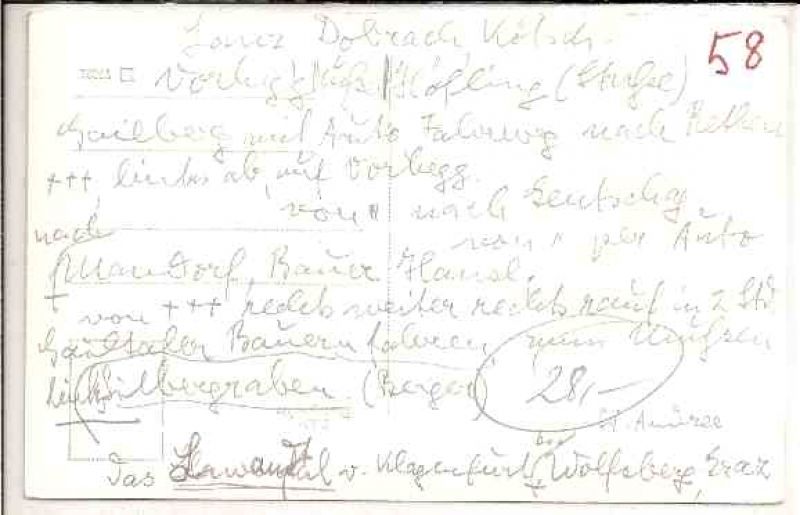 58
Dobrach, Kötsch.
Vorhegg Höfling (
Gailberg mit Auto Fahrweg nach
+++ links ab, auf Vorhegg.
von " nach
nach von " per Auto
Mandorf, Bauer Hansl.
von +++ rechts weiter rechts rauf in 2 Std
Gailtaler Bauern fahren zum
links Silbergraben (Berger) 28,-
St. Andree
Das Lavanttal v. Klagenfurt bis Wolfsberg, Graz